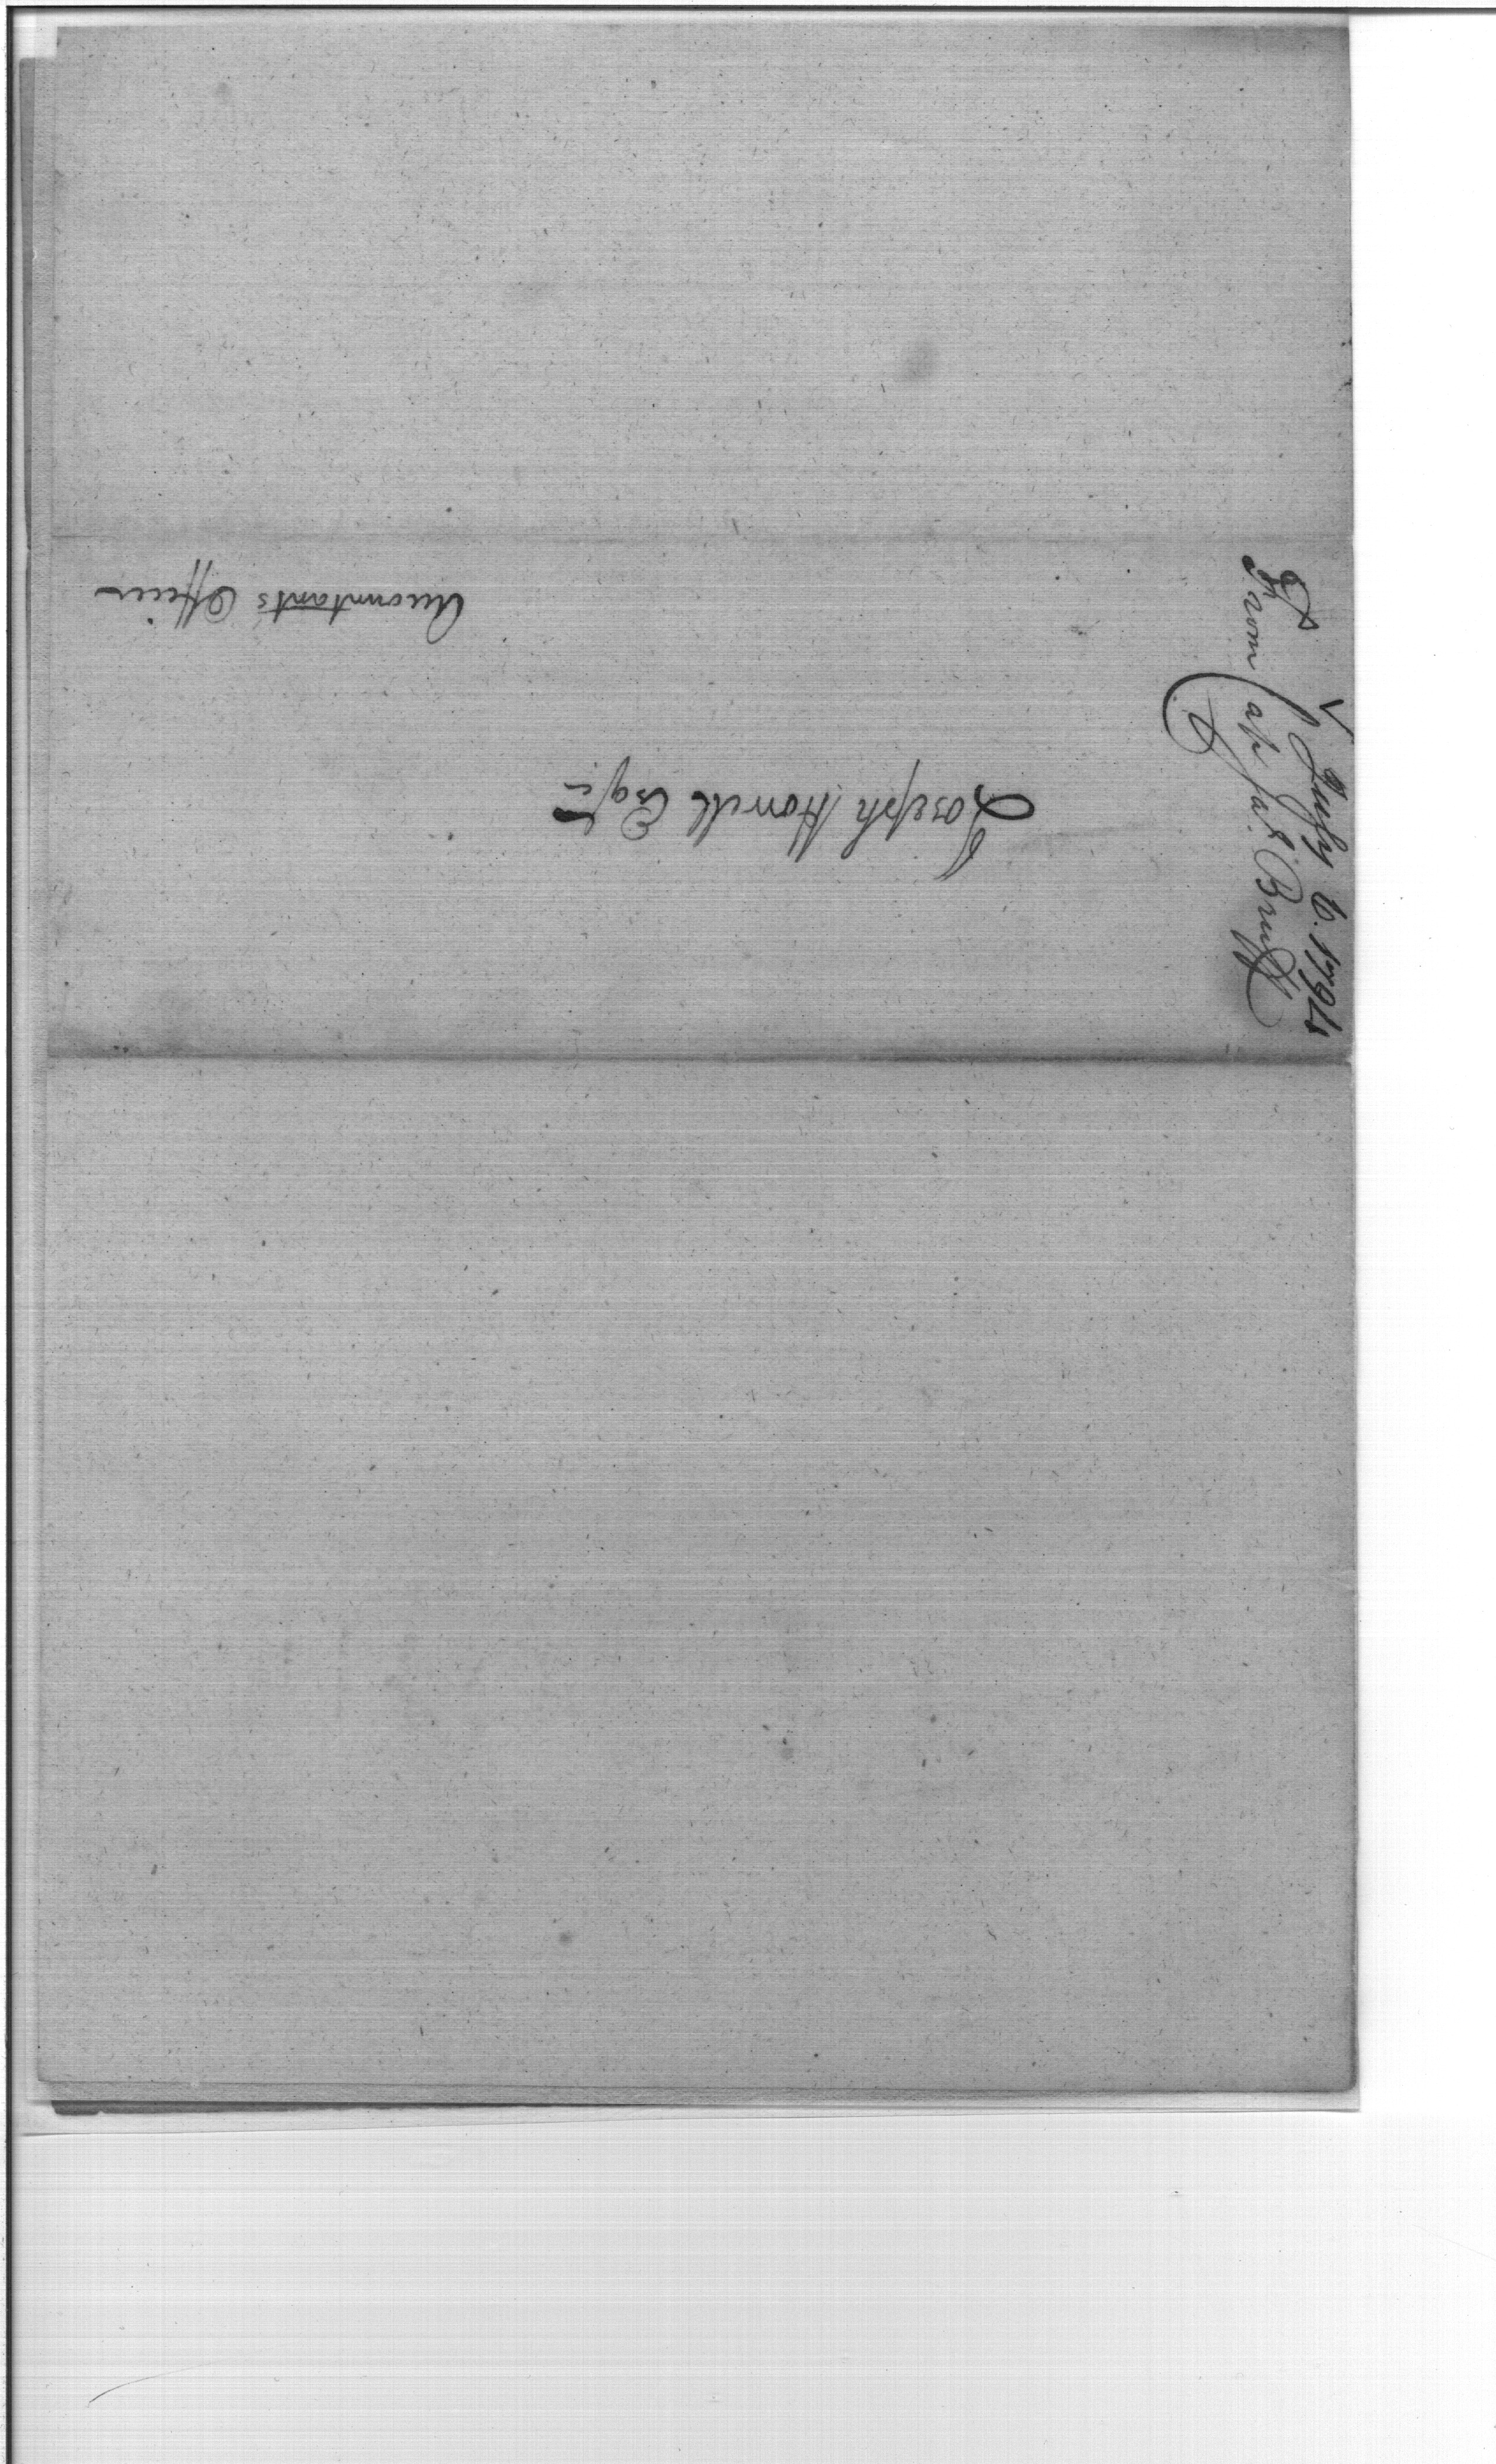 Joseph Howell Esqr
Accountants Office
July 6. 1794
From Capt Jas. Bruff